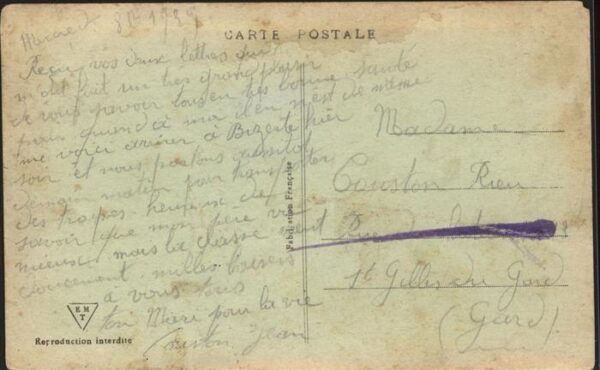 CARTE POSTALE
Reçu vos deux lettres qui
m'ont fait un très grand plaisir
de vous savoir tous en très bonne santé
pour quand à moi il en est de même
me voici arriver à Bizerte hier
soir et nous partons aussitôt
demain matin pour
des troupes heureux de
savoir que mon père va
mieux mais la classe vient
doucement milles baisers
à vous tous
ton Mari pour la vie
Jean
EMT
Reproduction interdite
Fabrication Française
Madame
Couston Rieu
St Gilles du Gard
(Gard)